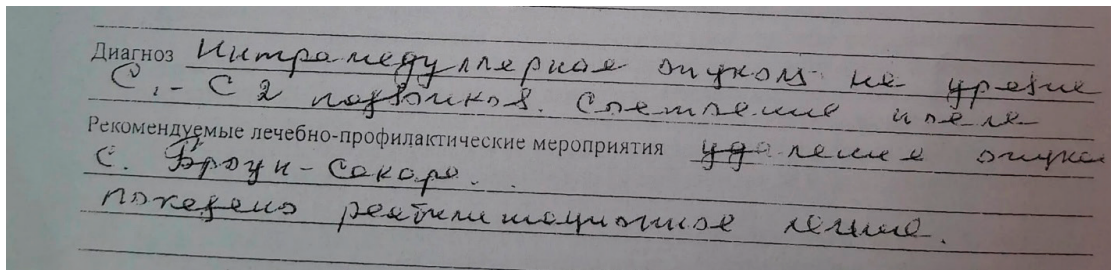 Диагноз Интрамедуллярная опухоль на уровне
С1-С2 позвонков. Состояние после
Рекомендуемые лечебно-профилактические мероприятия удаления опухоли
С. Броун-Секара.
показано реабилитационное лечение.